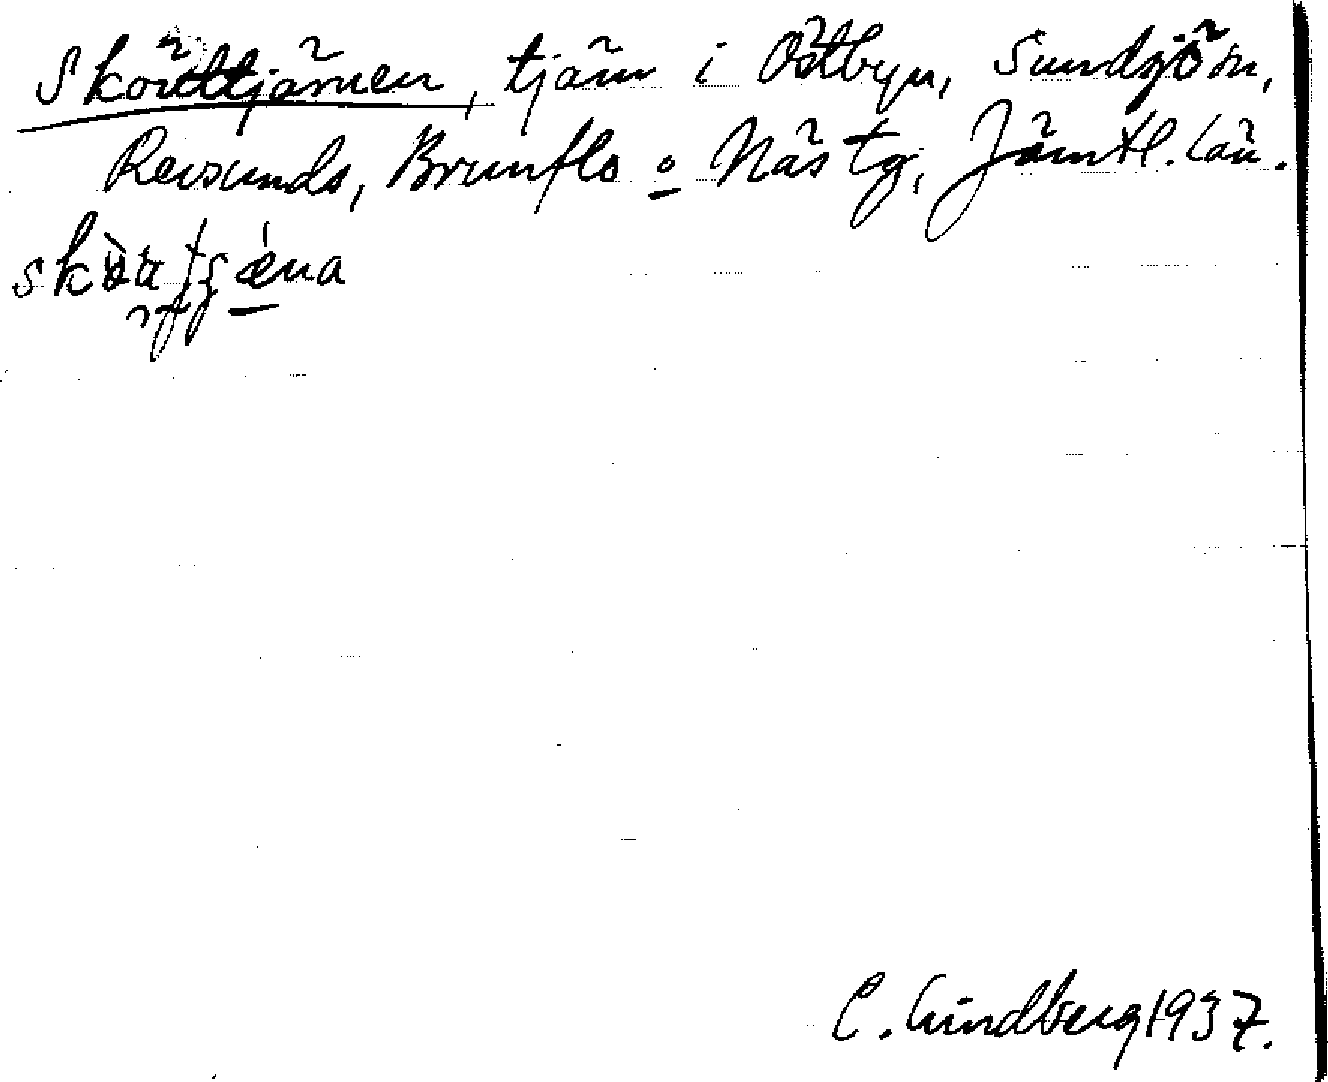 Sköttjärnen, tjärn i Östbyn, Sundsjö sn,
Revsunds, Brunflo o Näs tg, Jämtl. län.
C. Lindberg 1937.